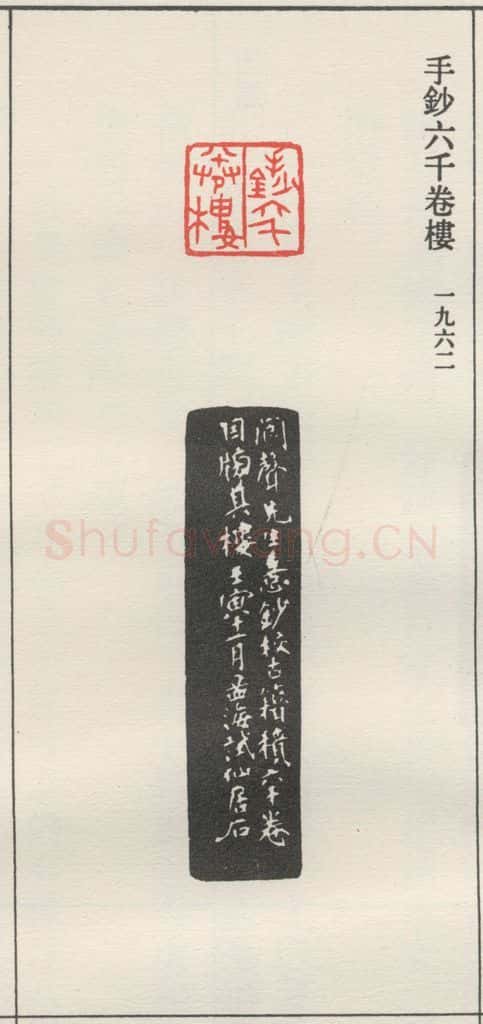 手鈔六千卷樓 一九六二
手鈔六千
卷樓
閬聲先生意鈔校古籍積六千卷
因牓其樓壬寅十一月孟海試仙居石
Shufawang.CN